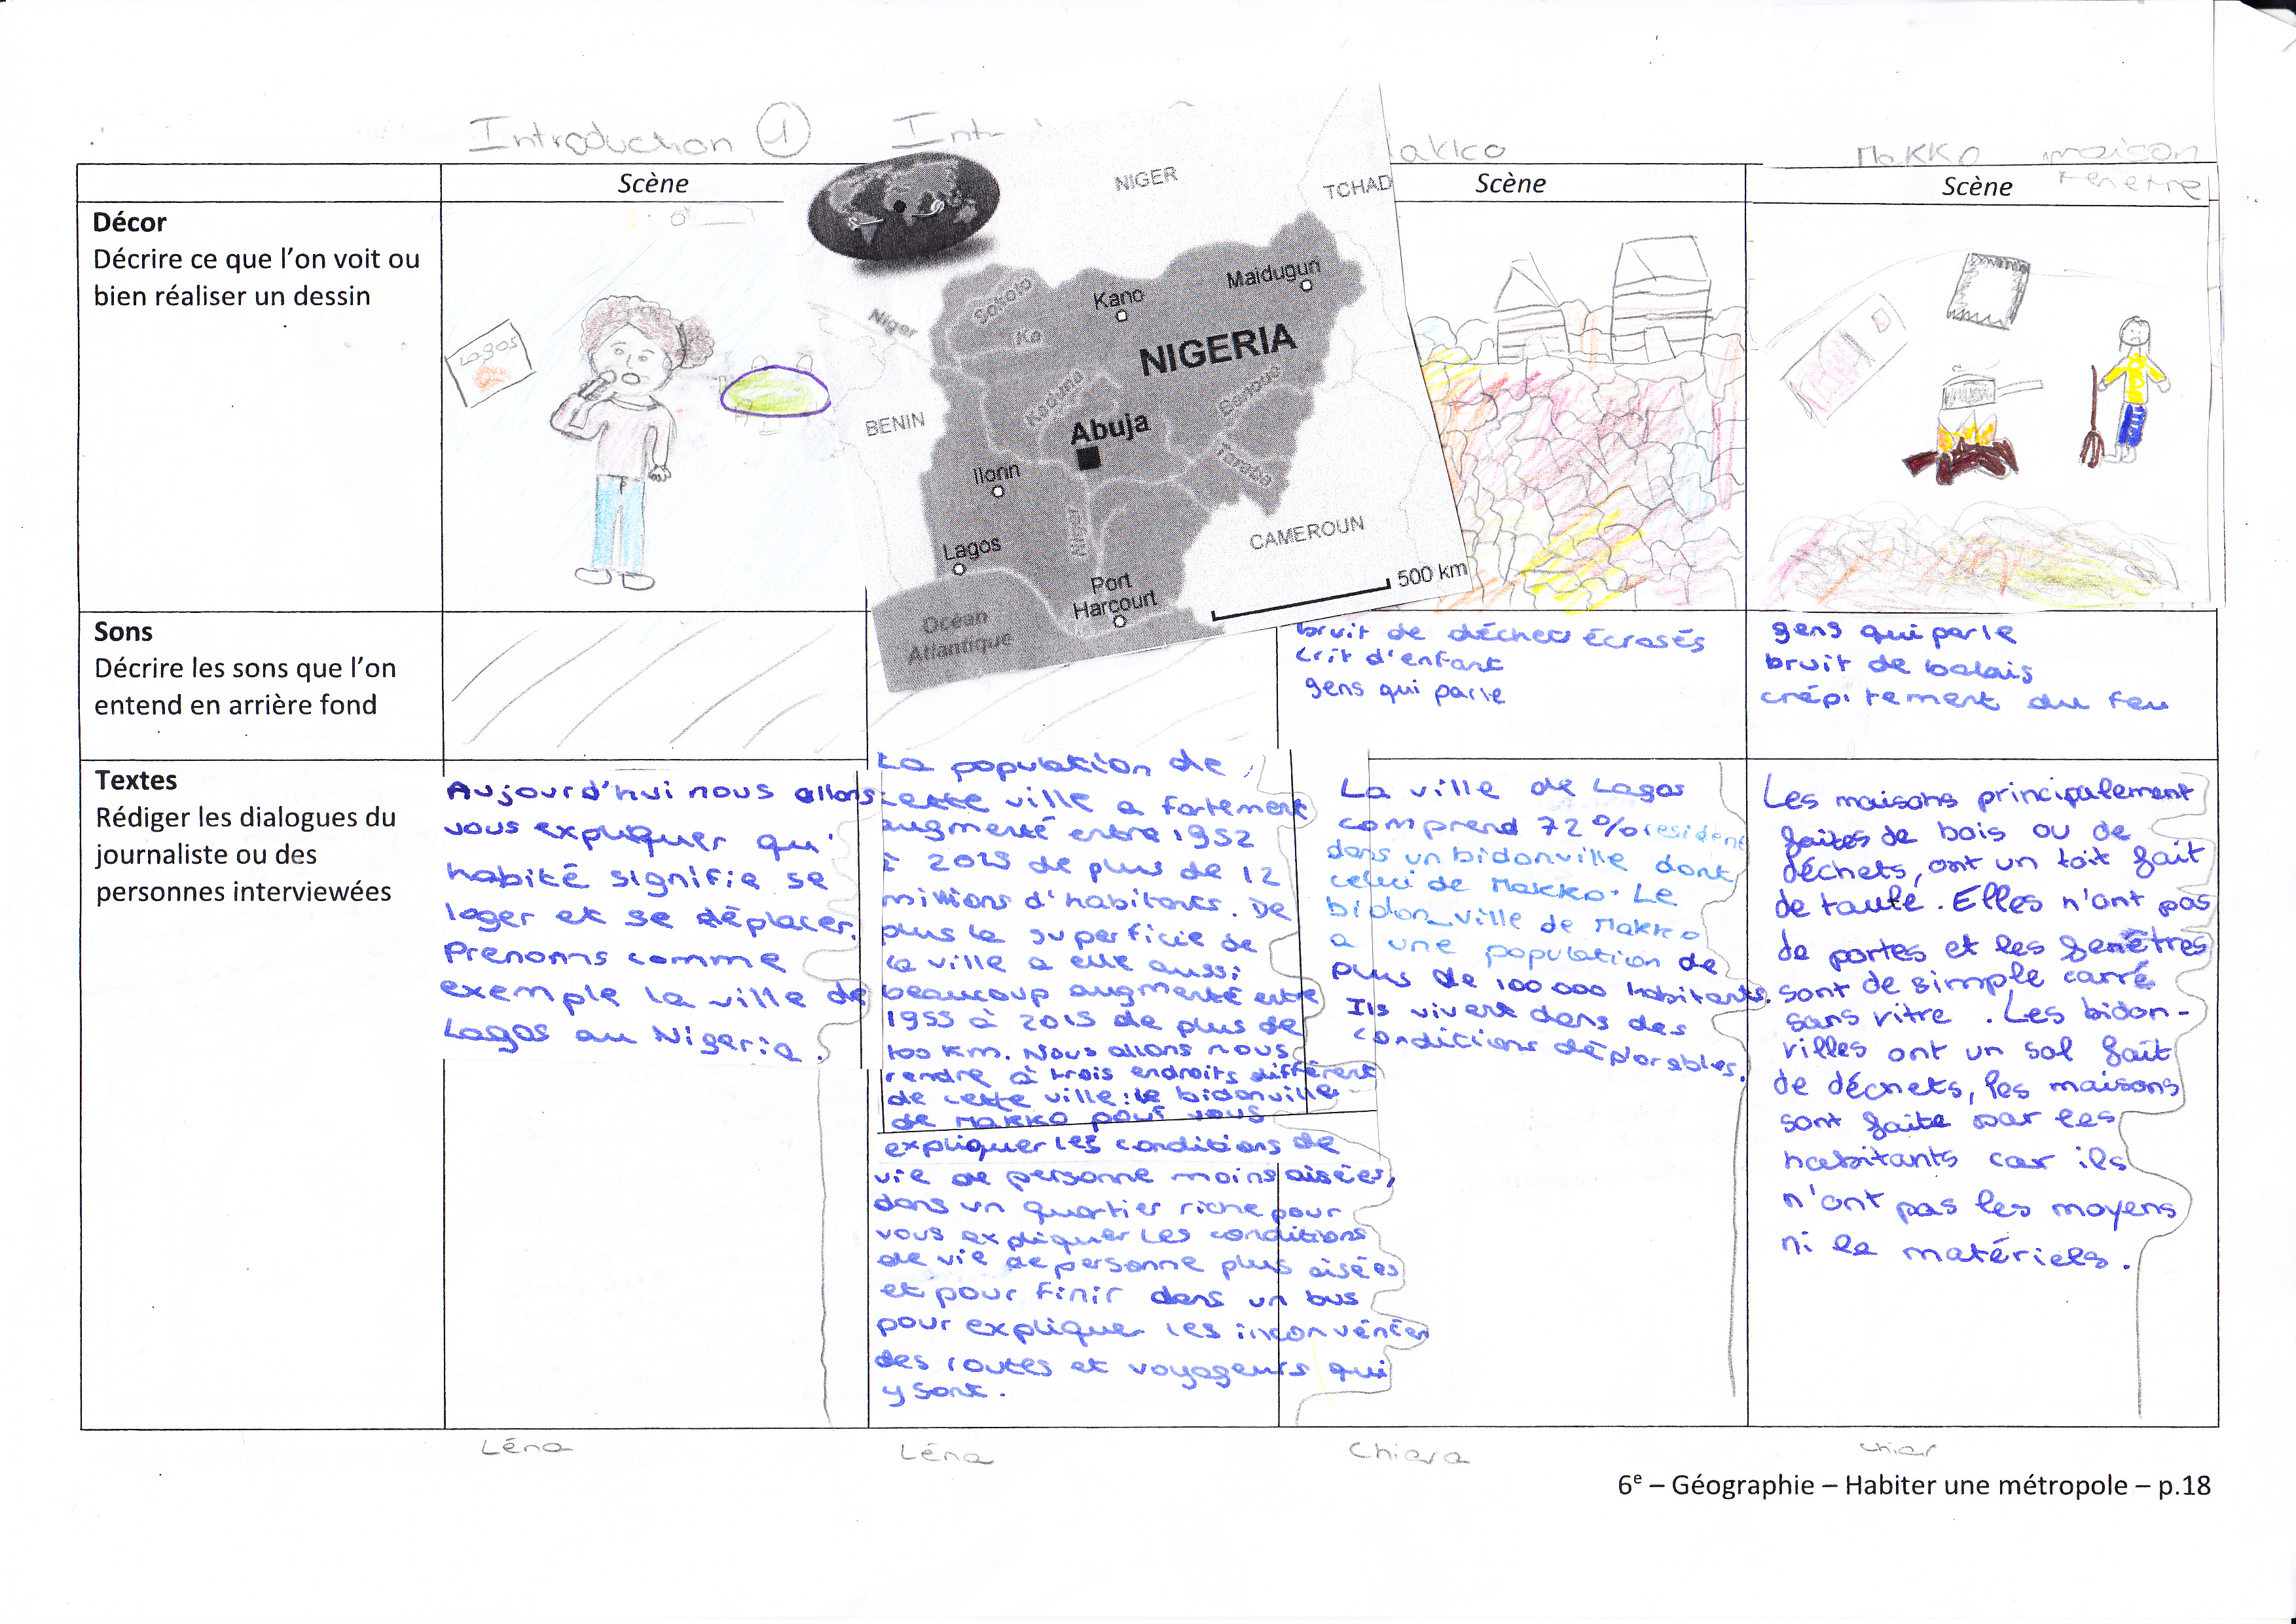 Introduction 1
Int
akko
Makko maison
fenetre
Scène
Scène
Scène
Décor
Décrire ce que l'on voit ou
bien réaliser un dessin
Lagos
NIGER
TCHAD
Niger
Sokoto
Ka
Kano
Maiduguri
NIGERIA
Kaduna
BENIN
Abuja
Taraba
Ilorin
Niger
CAMEROUN
Lagos
Port
Harcourt
500 km
Océan
Atlantique
Sons
Décrire les sons que l'on
entend en arrière fond
bruit de déchets écrasés
crit d'enfant
gens qui parle
gens qui parle
bruit de balais
crépitement du feu
Textes
Rédiger les dialogues du
journaliste ou des
personnes interviewées
Aujourd'hui nous allons
vous expliquer qu'
habité signifie se
loger et se déplacer.
Prenonns comme
exemple la ville de
Lagos au Nigeria.
La population de
cette ville a fortement
augmenté entre 1952
à 2015 de plus de 12
millions d'habitants. De
plus la superficie de
la ville a elle aussi
beaucoup augmenté entre
1955 à 2015 de plus de
100 km. Nous allons nous
rendre à trois endroits différent
de cette ville : le bidonville
de Makko pour vous
expliquer les conditions de
vie de personne moins aisées,
dans un quartier riche pour
vous expliquer les conditions
de vie de personne plus aisées
et pour finir dans un bus
pour expliquer les inconvénien
des routes et voyageurs qui
y sont.
La ville de Lagos
comprend 72% resident
dans un bidonville dont
celui de Makko. Le
bidon_ville de Makko
a une population de
plus de 100 000 habitants.
Ils vivent dans des
conditions déplorables.
Les maisons principalement
faites de bois ou de
déchets, ont un toit fait
de taule. Elles n'ont pas
de portes et les fenêtres
sont de simple carré
sans vitre. Les bidon-
villes ont un sol fait
de déchets, les maisons
sont faite par les
habitants car ils
n'ont pas les moyens
ni le matériels.
Léna
Léna
Chiara
Chiar
6e – Géographie – Habiter une métropole – p.18